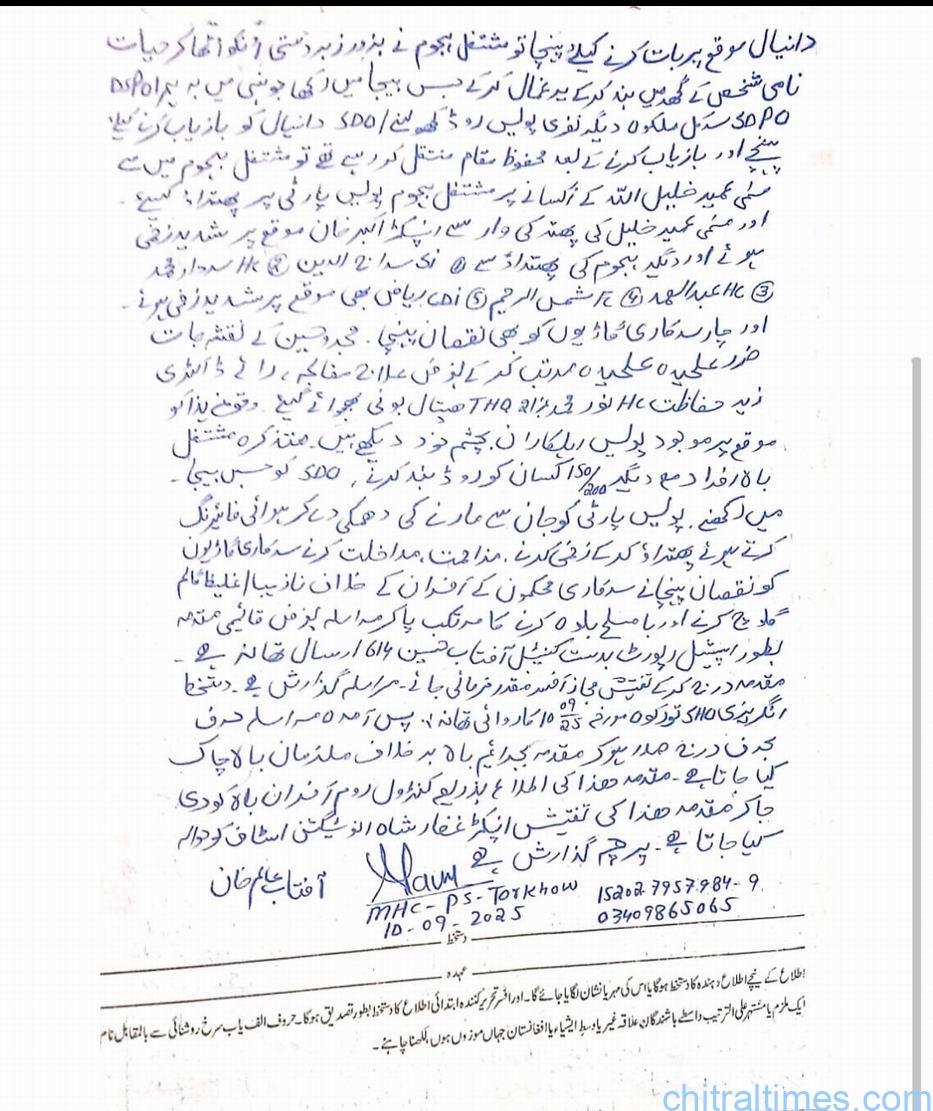 دانیال موقع پر بات کرنے کیلئے پہنچا تو مشتعل ہجوم نے بزور زبردستی انکو اٹھا کر حیات
نامی شخص کے گھر میں بند کرکے یرغمال کرکے حبس بیجا میں رکھا جونہی میں بہ ہمراہ DSPO
SDPO سرکل ملکوہ دیگر نفری پولیس روڈ کھولنے / SDO دانیال کو بازیاب کرنے کیلئے
پہنچے اور بازیاب کرنے کے بعد محفوظ مقام منتقل کر رہے تھے تو مشتعل ہجوم میں سے
مسمی عمیر خلیل اللہ کے اکسانے پر مشتعل ہجوم پولیس پارٹی پر پتھراؤ کیے۔
اور مسمی عمیر خلیل کی پتھر کی وار سے انسپکٹر اکبر خان موقع پر شدید زخمی
ہوئے اور دیگر ہجوم کی پتھراؤ سے ① سراج الدین ② HC سردار محمد
③ HC عبدالصمد ④ FC شمس الرحیم ⑤ ریاض بھی موقع پر شدید زخمی ہوئے۔
اور چار سرکاری گاڑیوں کو بھی نقصان پہنچا۔ مجروحین کے نقشہ جات
ضرر علحیدہ علحیدہ مرتب کر کے بغرض علاج معالجہ، رائے ڈاکٹری
زیر حفاظت HC نور محمد THQ ہسپتال بونی بھجوائے گئے۔ وقوعہ ہذا کو
موقع پر موجود پولیس اہلکاران بچشم خود دیکھے ہیں۔ متذکرہ مشتعل
بالا افراد مع دیگر 150/200 کسان کو روڈ بند کرنے، SDO کو حبس بیجا۔
میں رکھنے، پولیس پارٹی کو جان سے مارنے کی دھمکی دے کر ہوائی فائرنگ
کرتے ہوئے پتھراؤ کر کے زخمی کرنے، مزاحمت، مداخلت کرنے سرکاری گاڑیوں
کو نقصان پہنچانے سرکاری محکموں کے افسران کے خلاف نازیبا / غلیظ گالم
گلوچ کرنے اور با مسلح بلوہ کرنے کا مرتکب پا کر مراسلہ بغرض قائیمی مقدمہ
بطور اسپیشل رپورٹ بدست کنسٹیبل آفتاب حسین 614 ارسال تھانہ ہے۔
مقدمہ درج کر کے تفتیش مجاز آفسر مقرر فرمائی جائے۔ مراسلہ گذارش ہے۔ دستخط
انگریزی SHO تورکوہ مورخہ 10 09/25 کاروائی تھانہ :۔ پس آمدہ مراسلہ حرف
بحرف درج صدر ہو کر مقدمہ بجرائم بالا بر خلاف ملزمان بالا چاک
کیا جاتا ہے۔ مقدمہ ھذا کی اطلاع بذریعے کنٹرول روم افسران بالا کو دی
جا کر مقدمہ ھذا کی تفتیش انسپکٹر غفار شاہ انوسٹیگیشن اسٹاف کو حوالہ
کیا جاتا ہے۔ پرچہ گذارش ہے
آفتاب عالم خان
MHC - PS - Torkhow
10-09-2025
15202 7957984-9
03409865065
دستخط
عہدہ
اطلاع کے نیچے اطلاع دہندہ کا دستخط ہو گا یا اس کی مہر یا نشان لگایا جائے گا۔ اور افسر تحریر کنندہ ابتدائی اطلاع کا دستخط بطور تصدیق ہو گا۔ حروف الف یا ب سرخ روشنائی سے بالمقابل نام
ایک ملزم یا مشتہر علی الترتیب واسطے باشندگان علاقہ غیر یا وسط ایشیاء یا افغانستان جہاں موزوں ہوں، لکھنا چاہئے۔
chitraltimes.com